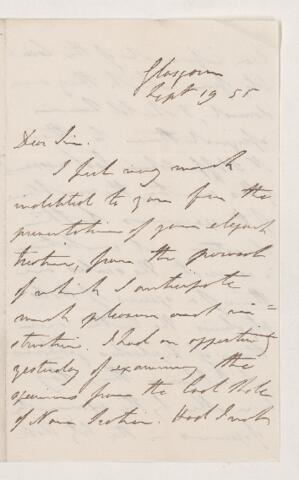 Glasgow
Sept 19 55
Dear Sir.
I feel very much
indebted to you for the
presentation of your elegant
treatise, from the perusal
of which I anticipate
much pleasure and in=
struction. I had an opportunity
yesterday of examining the
specimens from the Coal Shale
of Nova Scotia. Had I not